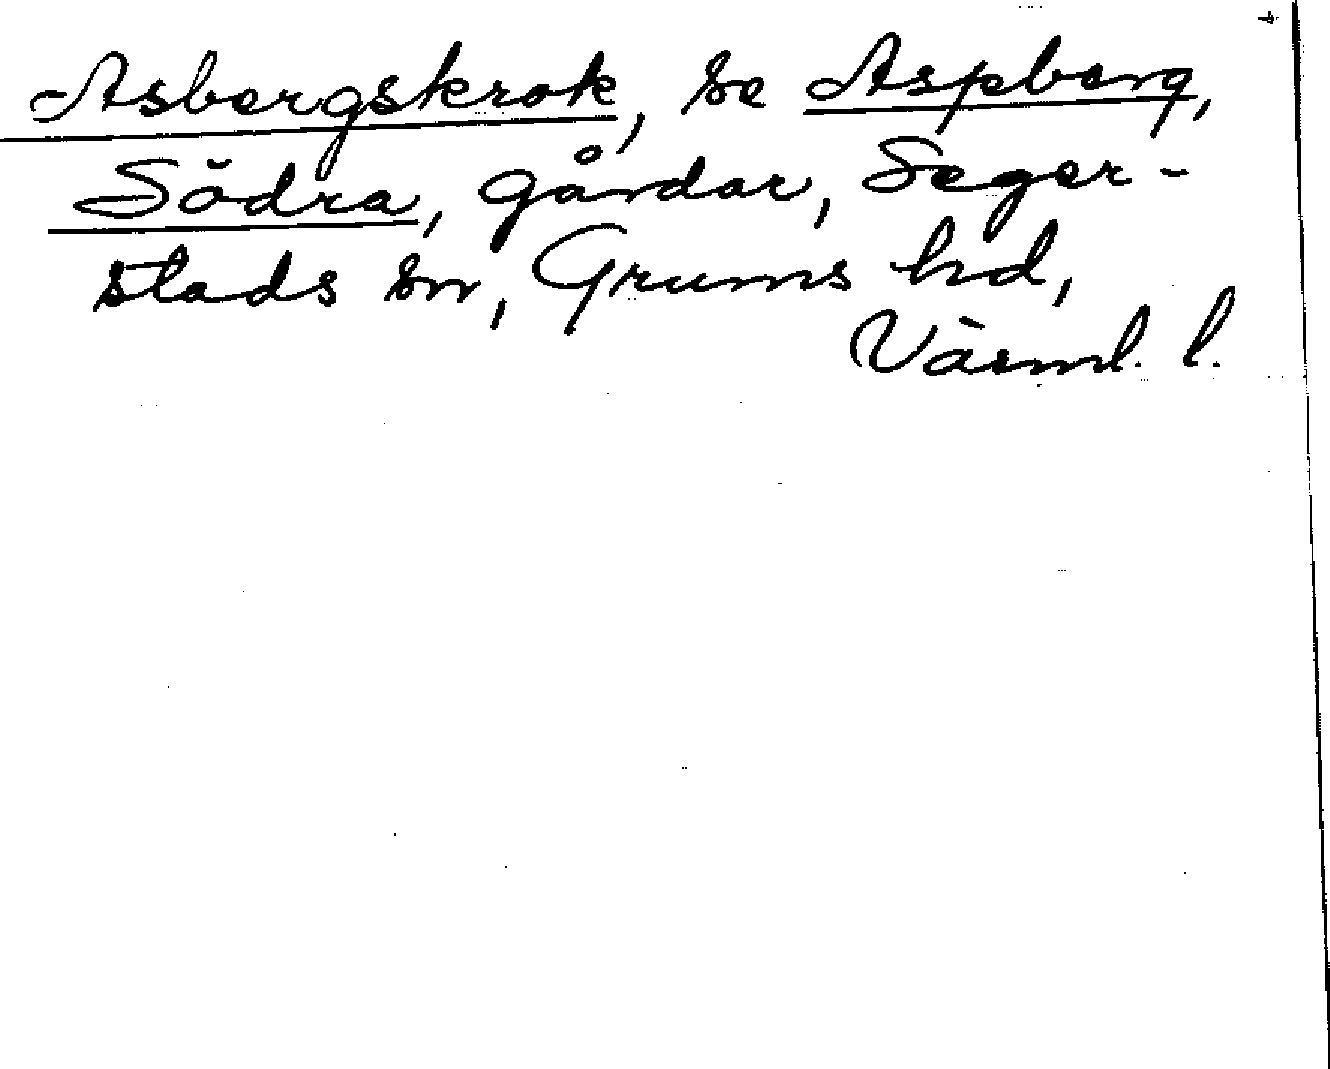 Asbergskrok, se Aspberg,
Södra, gårdar, Seger-
stads sn, Grums hd,
Värml. l.